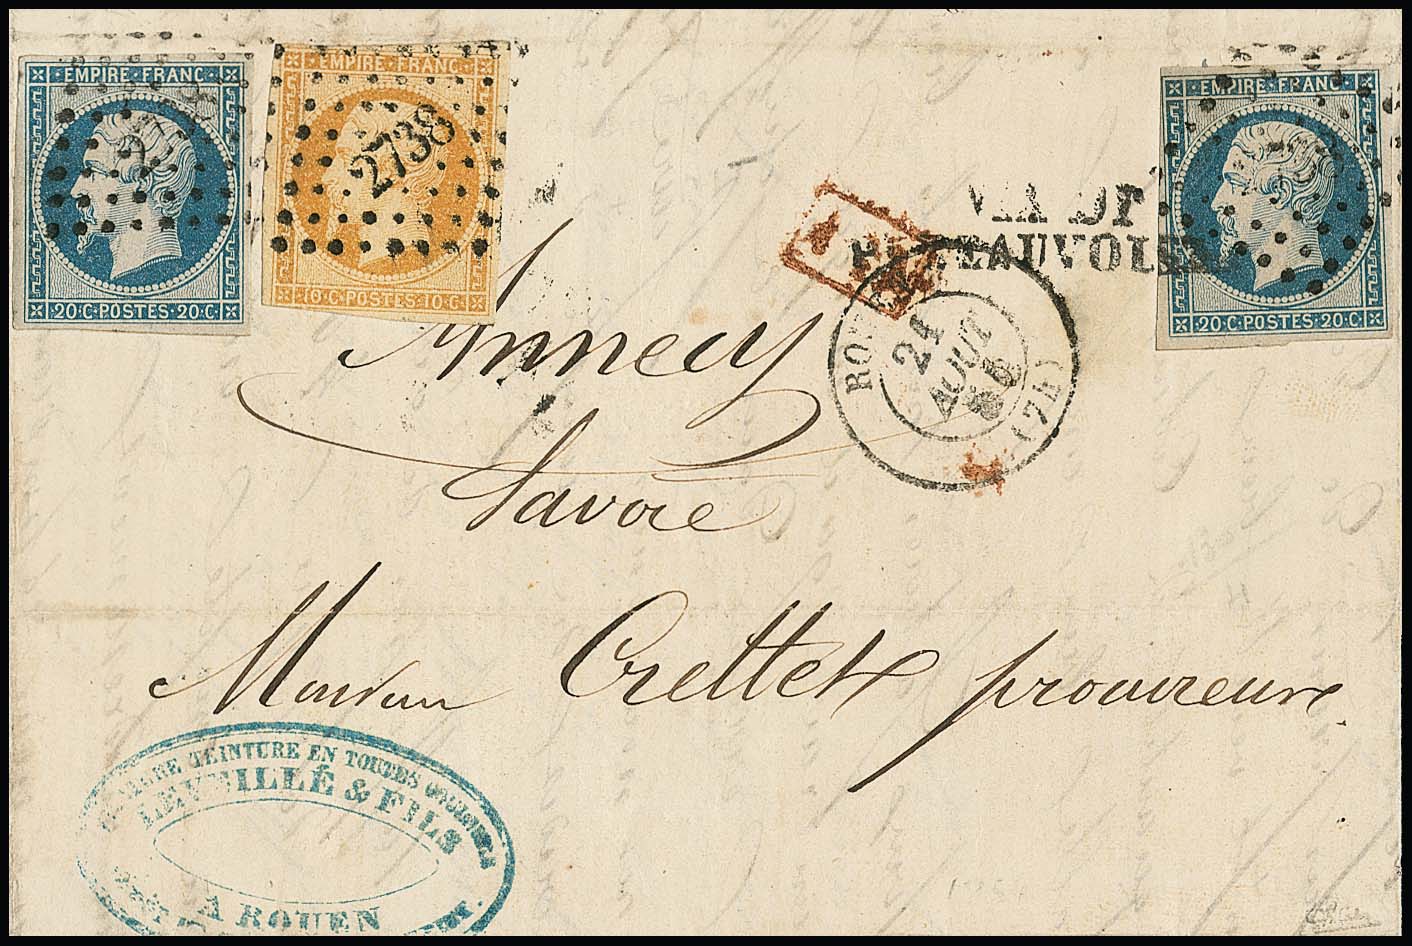 EMPIRE·FRANC·
20·C·POSTES·20·C·
EMPIRE·FRANC·
2738
10·C·POSTES·10·C·
EMPIRE·FRANC·
20·C·POSTES·20·C·
VIA DI
PONTEAUVOISIN
21
AOUT
(74)
Annecy
Savoie
Crettet procureur
TEINTURE EN TOUTES COULEURS
LEVEILLÉ & FILS
A ROUEN